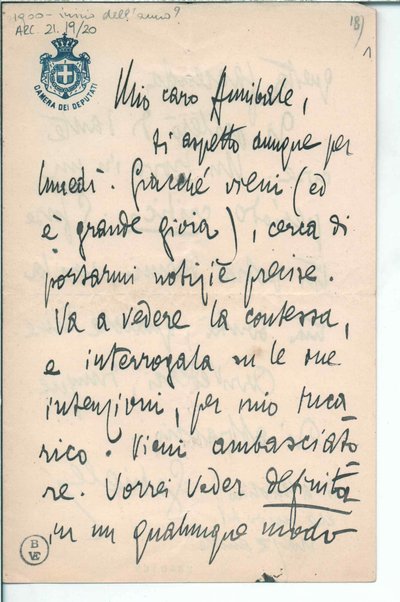 1900 - inizio dell'anno?
ARC. 21. 19/20
18)
1
CAMERA DEI DEPUTATI
Mio caro Annibale,
ti aspetto dunque per
lunedì. Giacché vieni (ed
è grande gioia), cerca di
portarmi notizie precise.
Va a vedere la contessa,
e interrogala su le sue
intenzioni, per mio inca=
rico. Vieni ambasciato=
re. Vorrei veder definita,
in un qualunque modo
B
VE